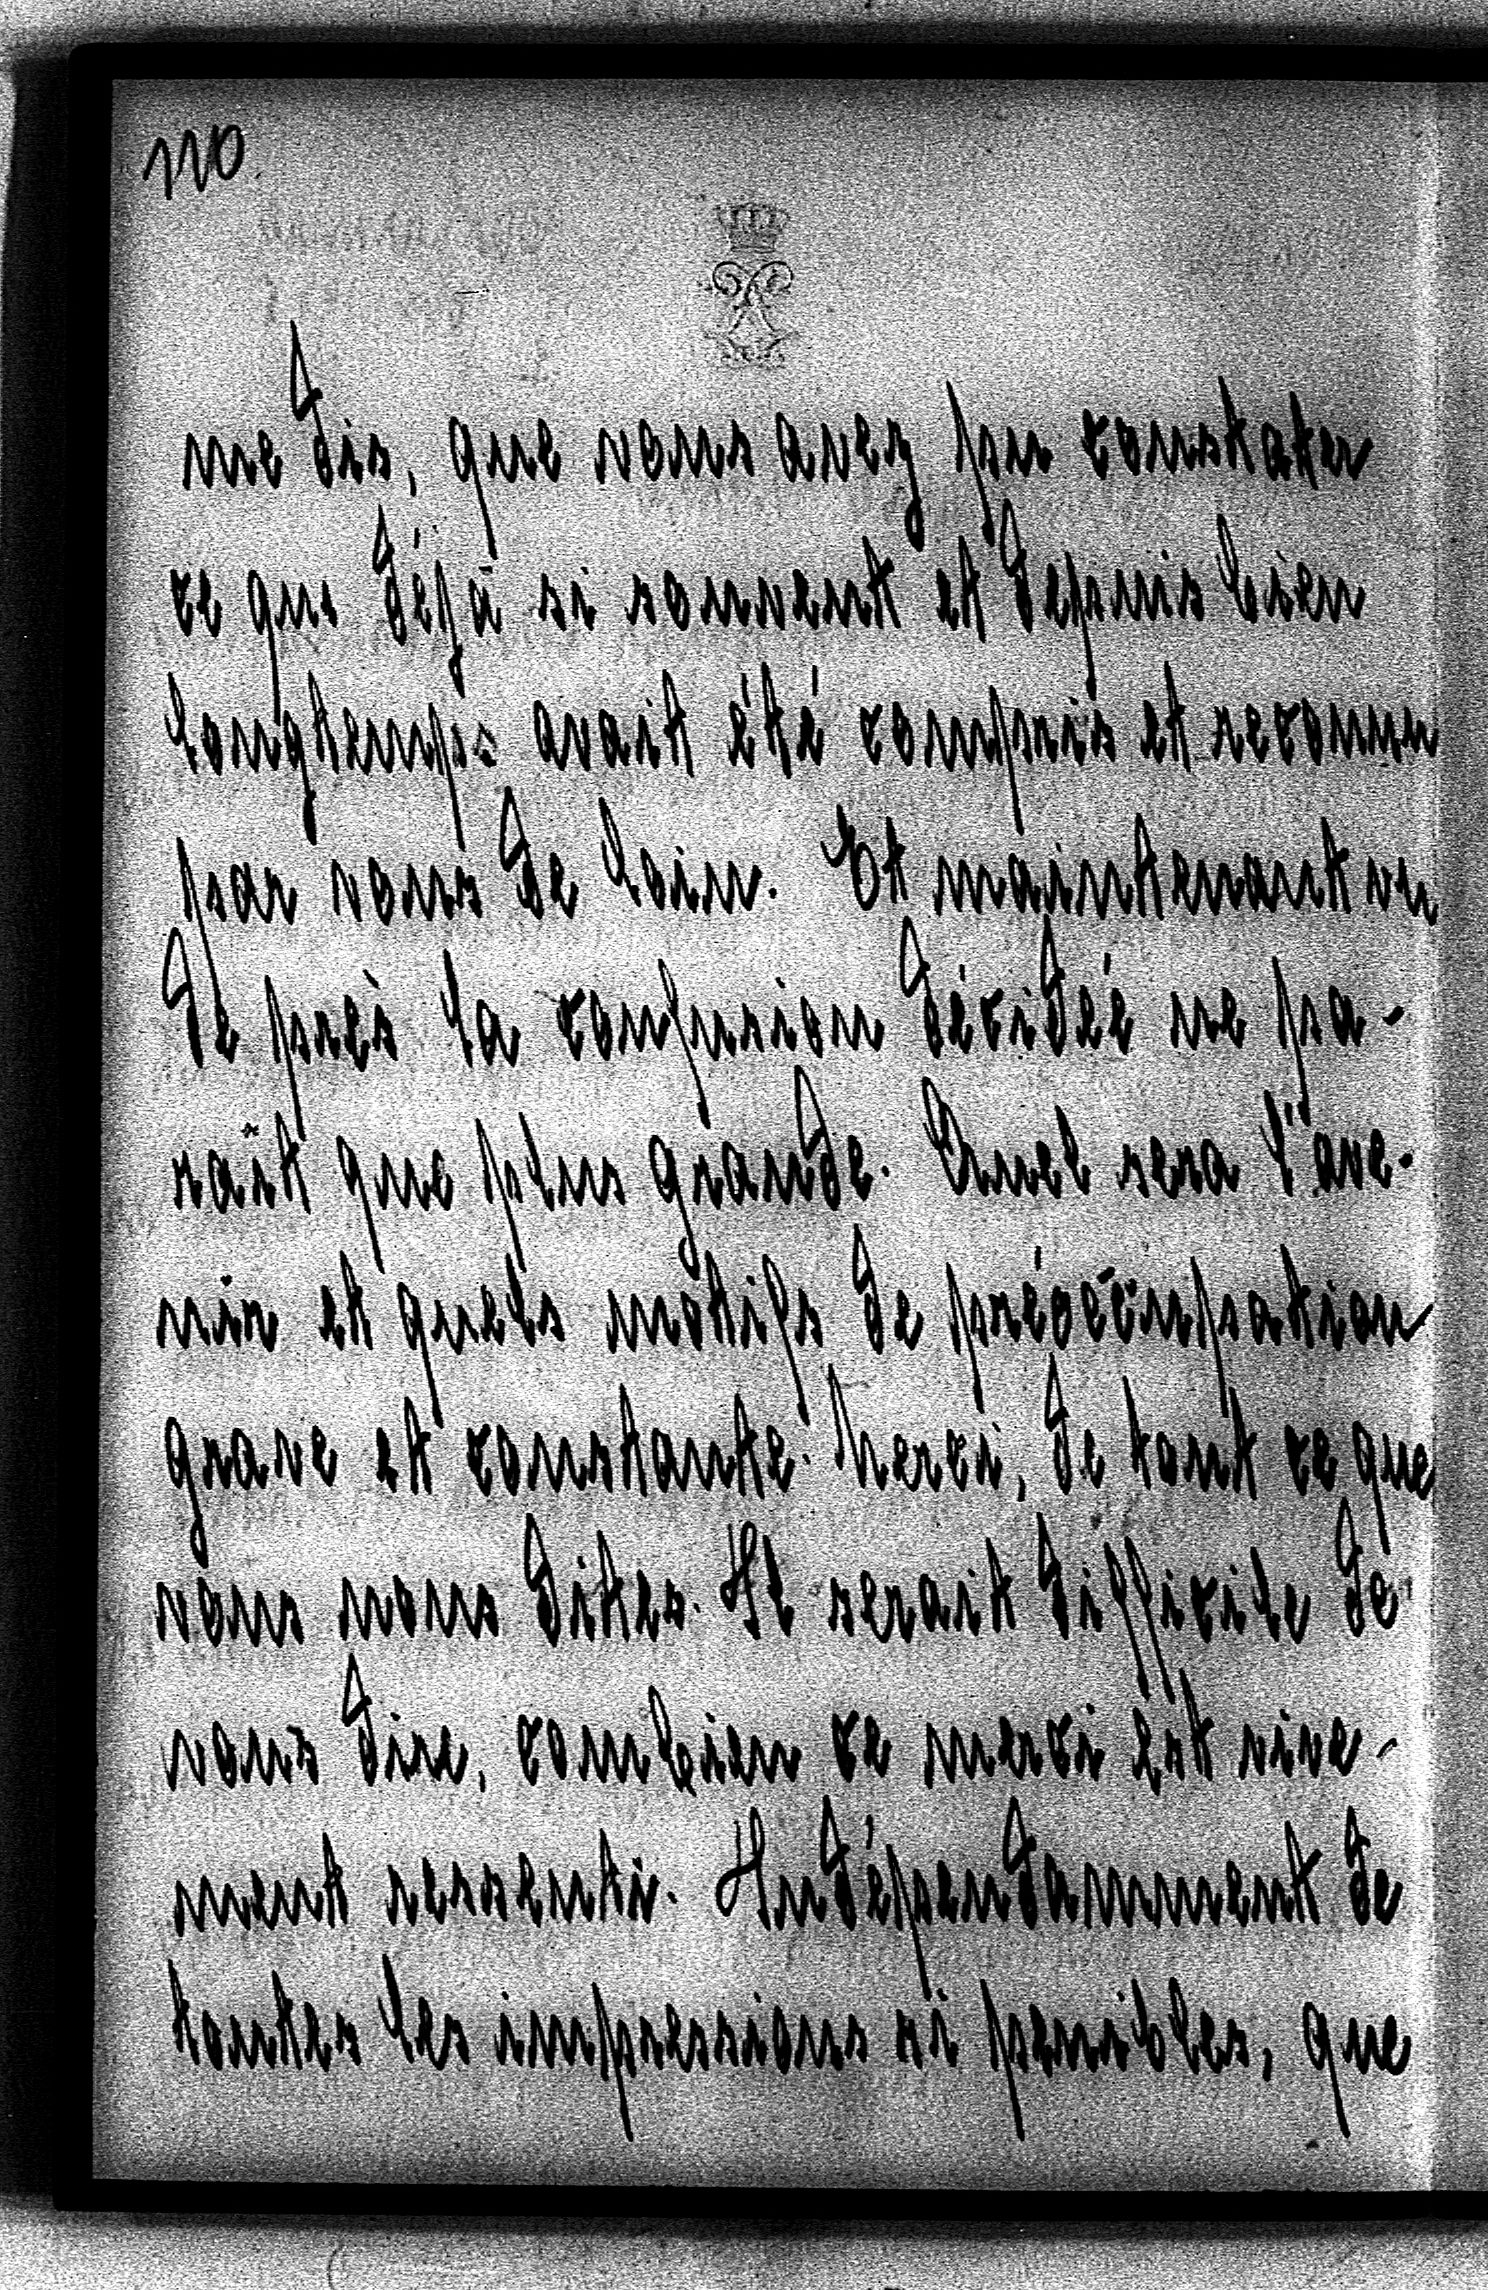 110.
me dis, que vous avez pu constater
ce qui déjà si souvent et depuis bien
longtemps avait été compris et reconnu
par vous de loin. Et maintenant vu
de près la confusion décidée ne pa-
raît que plus grande. Quel sera l'ave-
nir et quels motifs de préoccupation
grave et constante. Merci, de tout ce que
vous nous dites. Il serait difficile de
vous dire, combien ce merci est vive-
ment ressenti. Indépendamment de
toutes les impressions si penibles, que